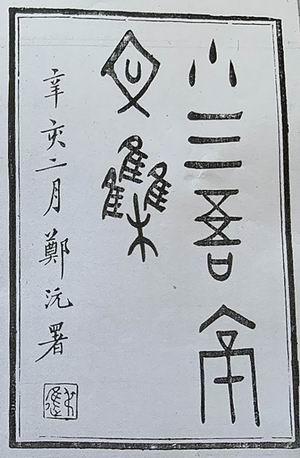 小三吾亭
文雧
辛亥二月鄭沅署